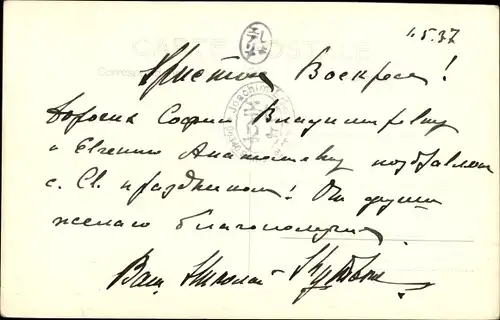 CARTE POSTALE
1.5.37
Христос Воскресе!
дорогих Софию Владимировну
и Евгению Анатольевну поздравляю
с Св. праздником! От души
желаю благополучия.
Ваш Николай